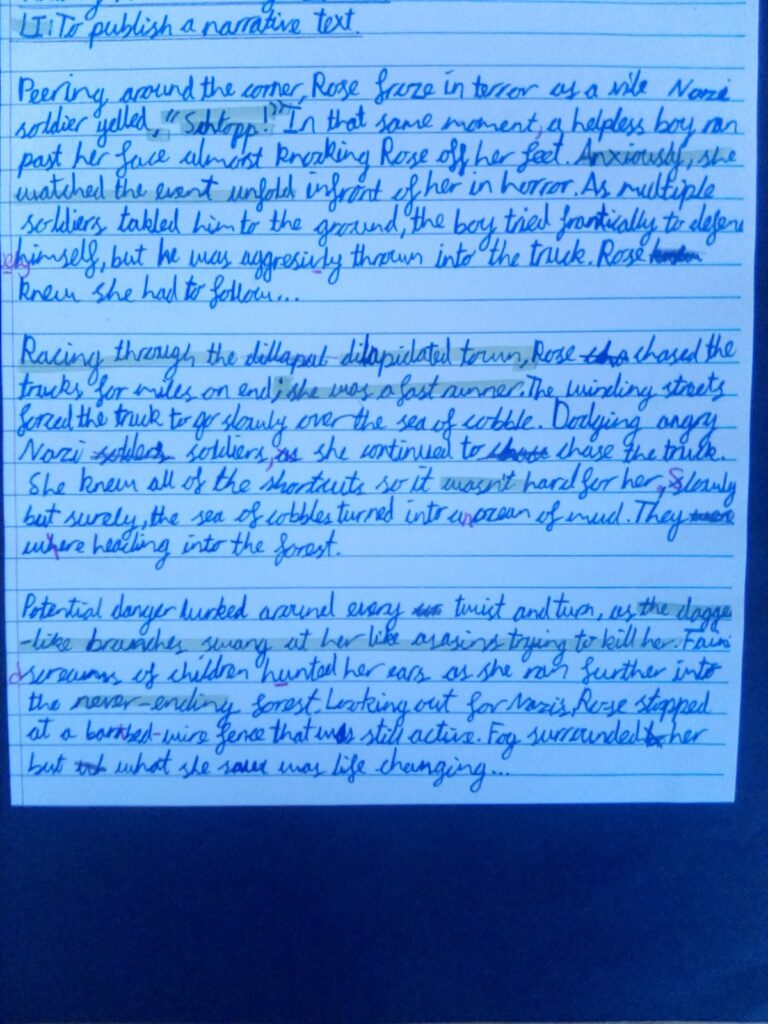 LI: To publish a narrative text.
Peering around the corner, Rose froze in terror as a vile Nazi
soldier yelled, "Schtopp!" In that same moment, a helpless boy ran
past her face almost knocking Rose off her feet. Anxiously, she
watched the event unfold infront of her in horror. As multiple
soldiers takled him to the ground, the boy tried frantically to defend
himself, but he was aggresivly thrown into the truck. Rose
knew she had to follow...
Racing through the dillapat dilapidated town, Rose chased the
trucks for miles on end; she was a fast runner. The winding streets
forced the truck to go slowly over the sea of cobble. Dodging angry
Nazi solders soldiers, as she continued to chase chase the truck.
She knew all of the shortcuts so it wasn't hard for her, Slowly
but surely, the sea of cobbles turned into an ocean of mud. They were
where heading into the forest.
Potential danger lurked around every twist and turn, as the dagge
-like branches swang at her like asasins trying to kill her. Fain
screams of children hunted her ears as she ran further into
the never-ending forest. Looking out for Nazis, Rose stopped
at a barbed-wire fence that was still active. Fog surrounded her
but what she saw was life changing...